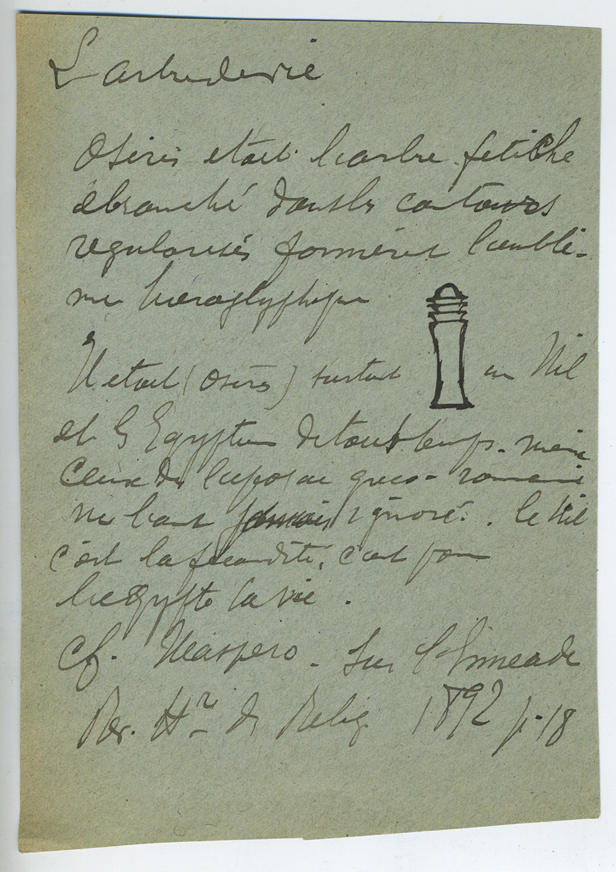 L'arbre de vie
Osiris était l'arbre fetiche
ébranché dont les contours
regularisés formèrent l'emblè-
me hieroglyphique
Il etait (Osiris) surtout un Nil
et les Egyptiens de tout temps. même
ceux de l'epoque greco-romaine
ne l'ont jamais ignoré. le Nil
c'est la fécondité, c'est pour
l'Egypte la vie.
Cf. Maspero. Sur l'Enneade
Rev. Hre des Relig 1892 p. 18